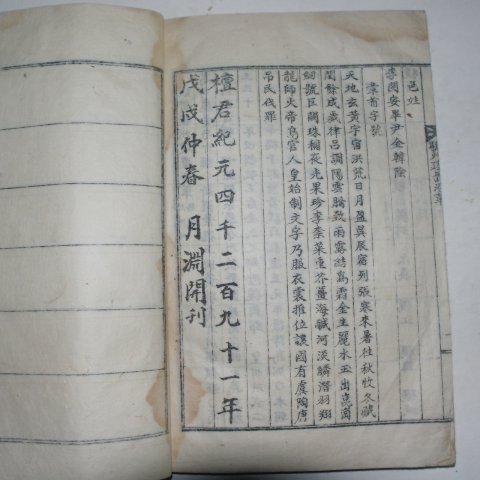 邑姓
李閔安畢尹金韓除
章首字號
天地玄黃宇宙洪荒日月盈昃辰宿列張寒來暑往秋收冬藏
閏餘成歲律呂調陽雲騰致雨露結爲霜金生麗水玉出崑崗
劍號巨闕珠稱夜光果珍李柰菜重芥薑海醎河淡鱗潛羽翔
龍師火帝鳥官人皇始制文字乃服衣裳推位讓國有虞陶唐
吊民伐罪
檀君紀元四千二百九十一年
戊戌仲春 月淵開刊